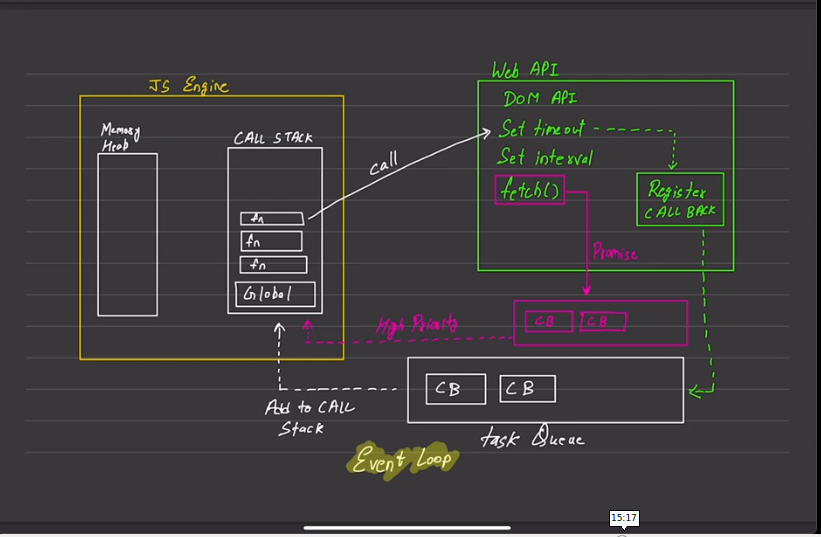 JS Engine
Memory
Heab
CALL STACK
fn
fn
fn
Global
call
Web API
DOM API
Set timeout
Set interval
fetch()
Register
CALL BACK
Promise
High Priority
CB CB
CB CB
Add to CALL
Stack
task Queue
Event Loop
15:17